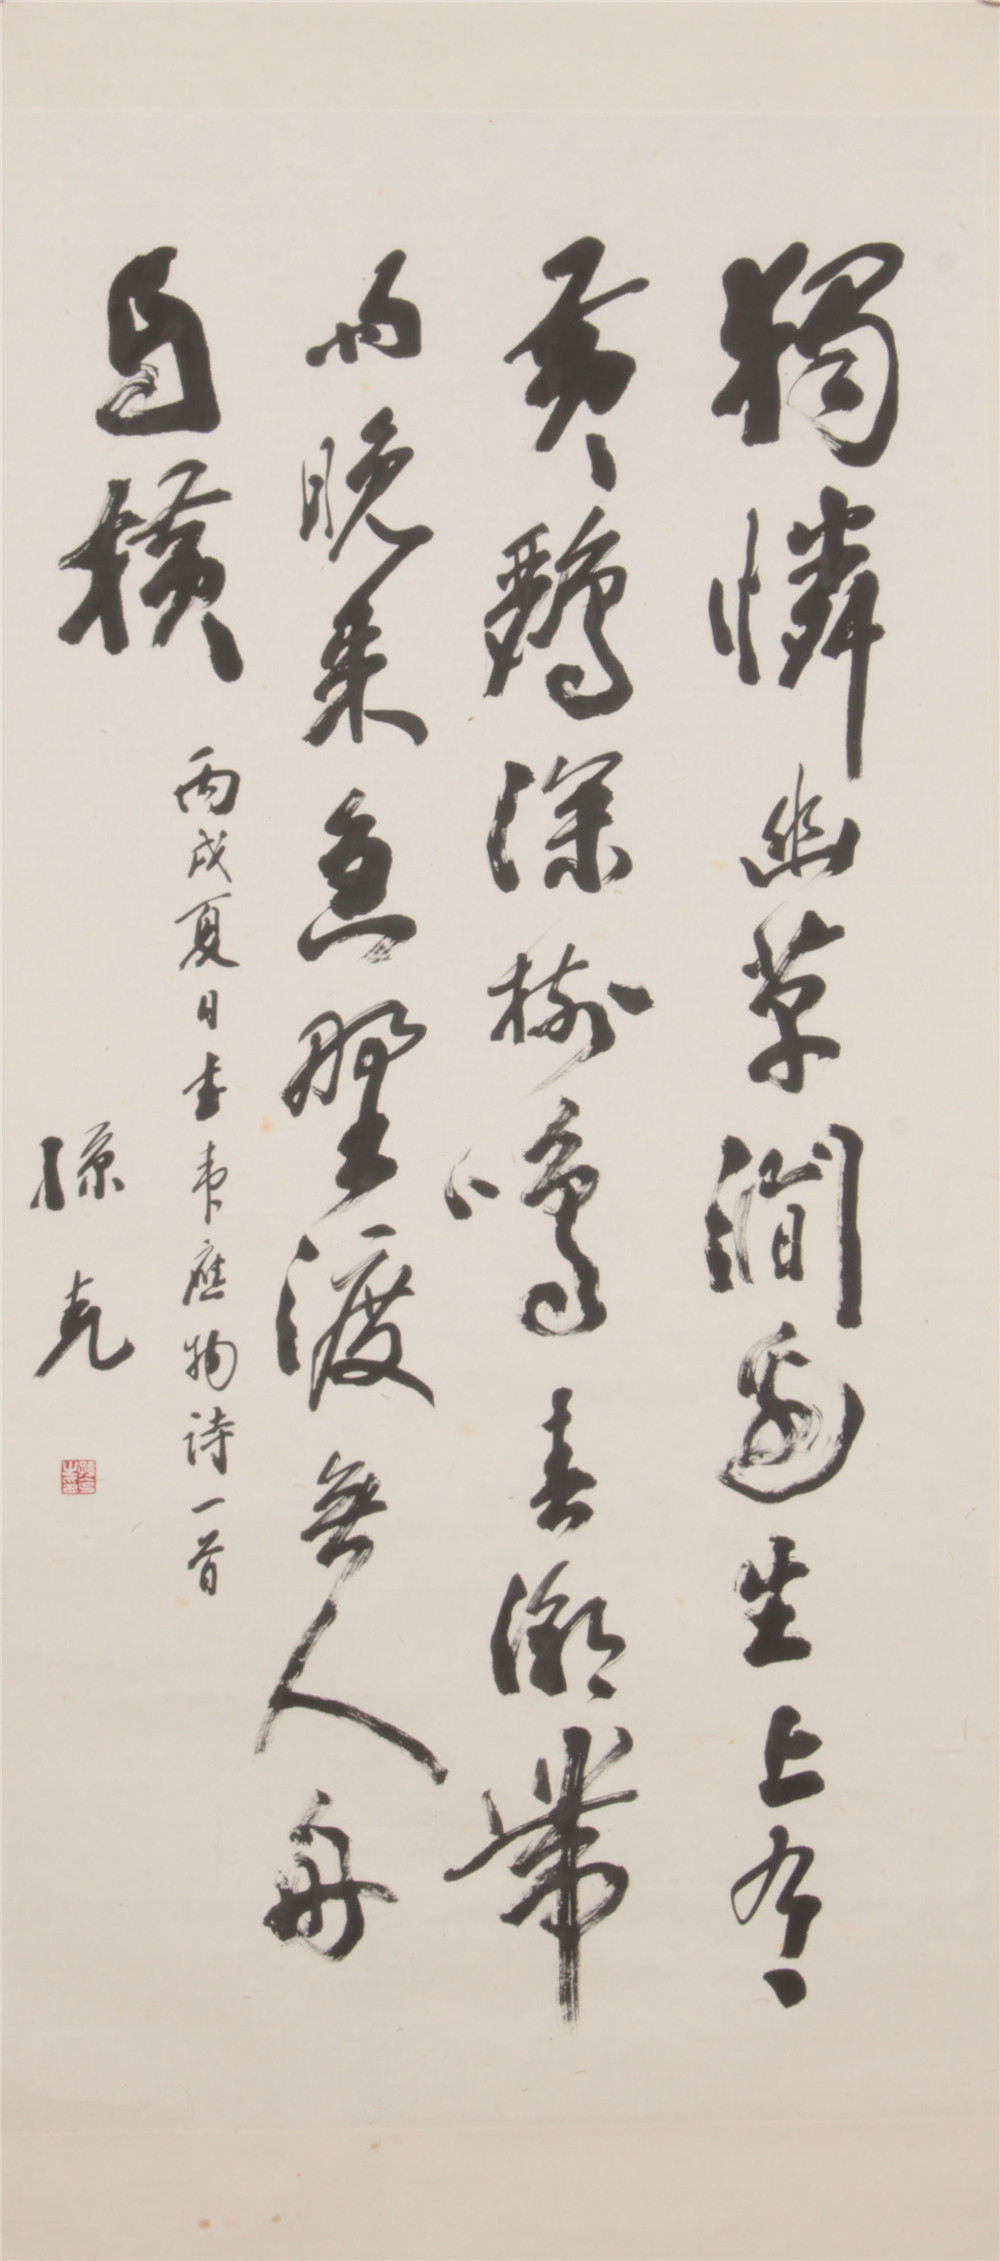 獨憐幽草澗邊生上有
黃鸝深樹鳴春潮帶
雨晚来急野渡無人舟
自橫
丙戌夏日書韦應物詩一首
孫克